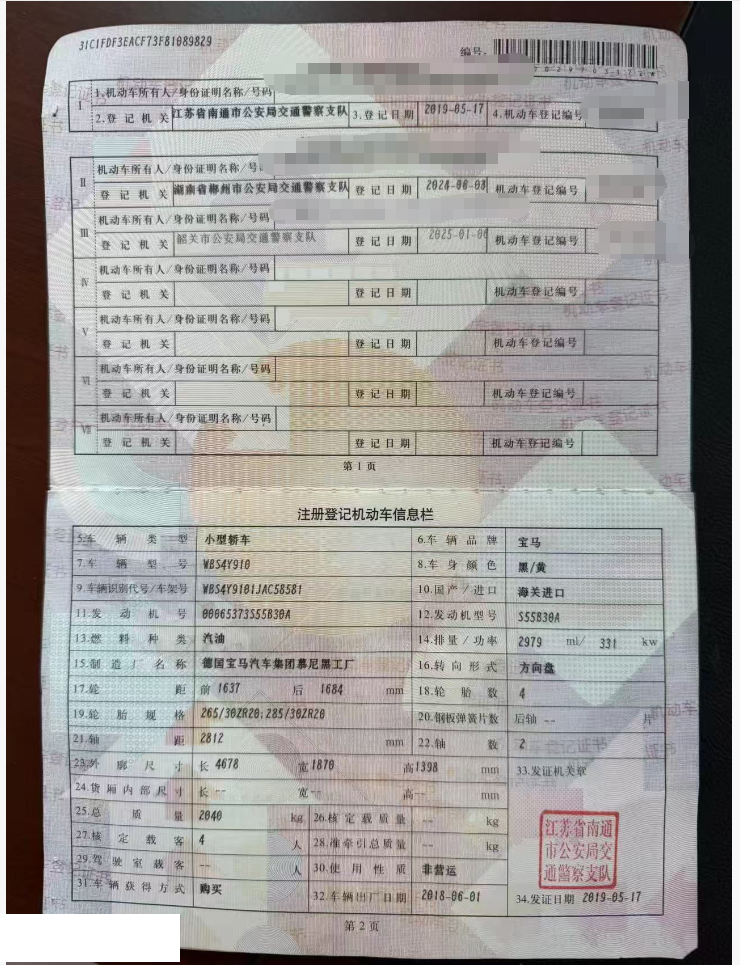 31C1FDF3EACF73F81089829
编号:
Ⅰ 1.机动车所有人/身份证明名称/号码
2.登记机关 江苏省南通市公安局交通警察支队 3.登记日期 2019-05-17 4.机动车登记编号
Ⅱ 机动车所有人/身份证明名称/号
登记机关 湖南省郴州市公安局交通警察支队 登记日期 2024-06-03 机动车登记编号
Ⅲ 机动车所有人/身份证明名称/号码
登记机关 韶关市公安局交通警察支队 登记日期 2025-01-06 机动车登记编号
Ⅳ 机动车所有人/身份证明名称/号码
登记机关 登记日期 机动车登记编号
Ⅴ 机动车所有人/身份证明名称/号码
登记机关 登记日期 机动车登记编号
Ⅵ 机动车所有人/身份证明名称/号码
登记机关 登记日期 机动车登记编号
Ⅶ 机动车所有人/身份证明名称/号码
登记机关 登记日期 机动车登记编号
第1页
注册登记机动车信息栏
5.车辆类型 小型轿车 6.车辆品牌 宝马
7.车辆型号 WBS4Y910 8.车身颜色 黑/黄
9.车辆识别代号/车架号 WBS4Y9101JAC58581 10.国产/进口 海关进口
11.发动机号 00065373S55B30A 12.发动机型号 S55B30A
13.燃料种类 汽油 14.排量/功率 2979 ml/ 331 kw
15.制造厂名称 德国宝马汽车集团慕尼黑工厂 16.转向形式 方向盘
17.轮距 前 1637 后 1684 mm 18.轮胎数 4
19.轮胎规格 265/30ZR20;285/30ZR20 20.钢板弹簧片数 后轴 -- 片
21.轴距 2812 mm 22.轴数 2
23.外廓尺寸 长 4678 宽 1870 高 1398 mm 33.发证机关章
24.货厢内部尺寸 长 -- 宽 -- 高 -- mm
25.总质量 2040 kg 26.核定载质量 -- kg
27.核定载客 4 人 28.准牵引总质量 -- kg
29.驾驶室载客 -- 人 30.使用性质 非营运
江苏省南通
市公安局交
通警察支队
31.车辆获得方式 购买 32.车辆出厂日期 2018-06-01 34.发证日期 2019-05-17
第2页